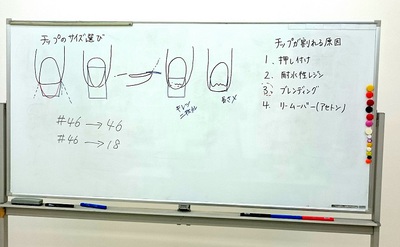 チップのサイズ選び
長さ×
#46 → 46
#46 → 18
チップが割れる原因
1. 押し付け
2. 耐水性レジン
3. ブレンディング
4. リームーバー(アセトン)